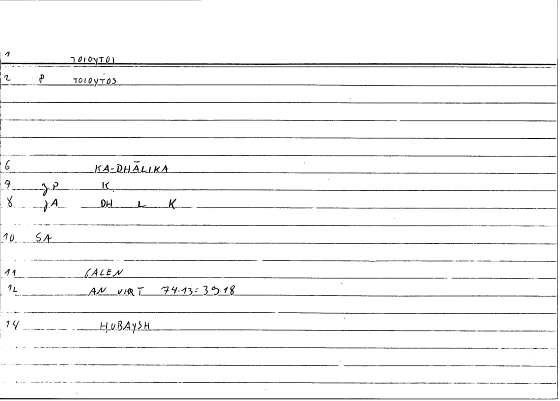 1 TOIOYTOI
2 P TOIOYTOS
6 KA-DHĀLIKA
9 JP K
8 JA DH L K
10 SA
11 GALEN
12 AN VIRT 74.13=39.18
14 HUBAYSH